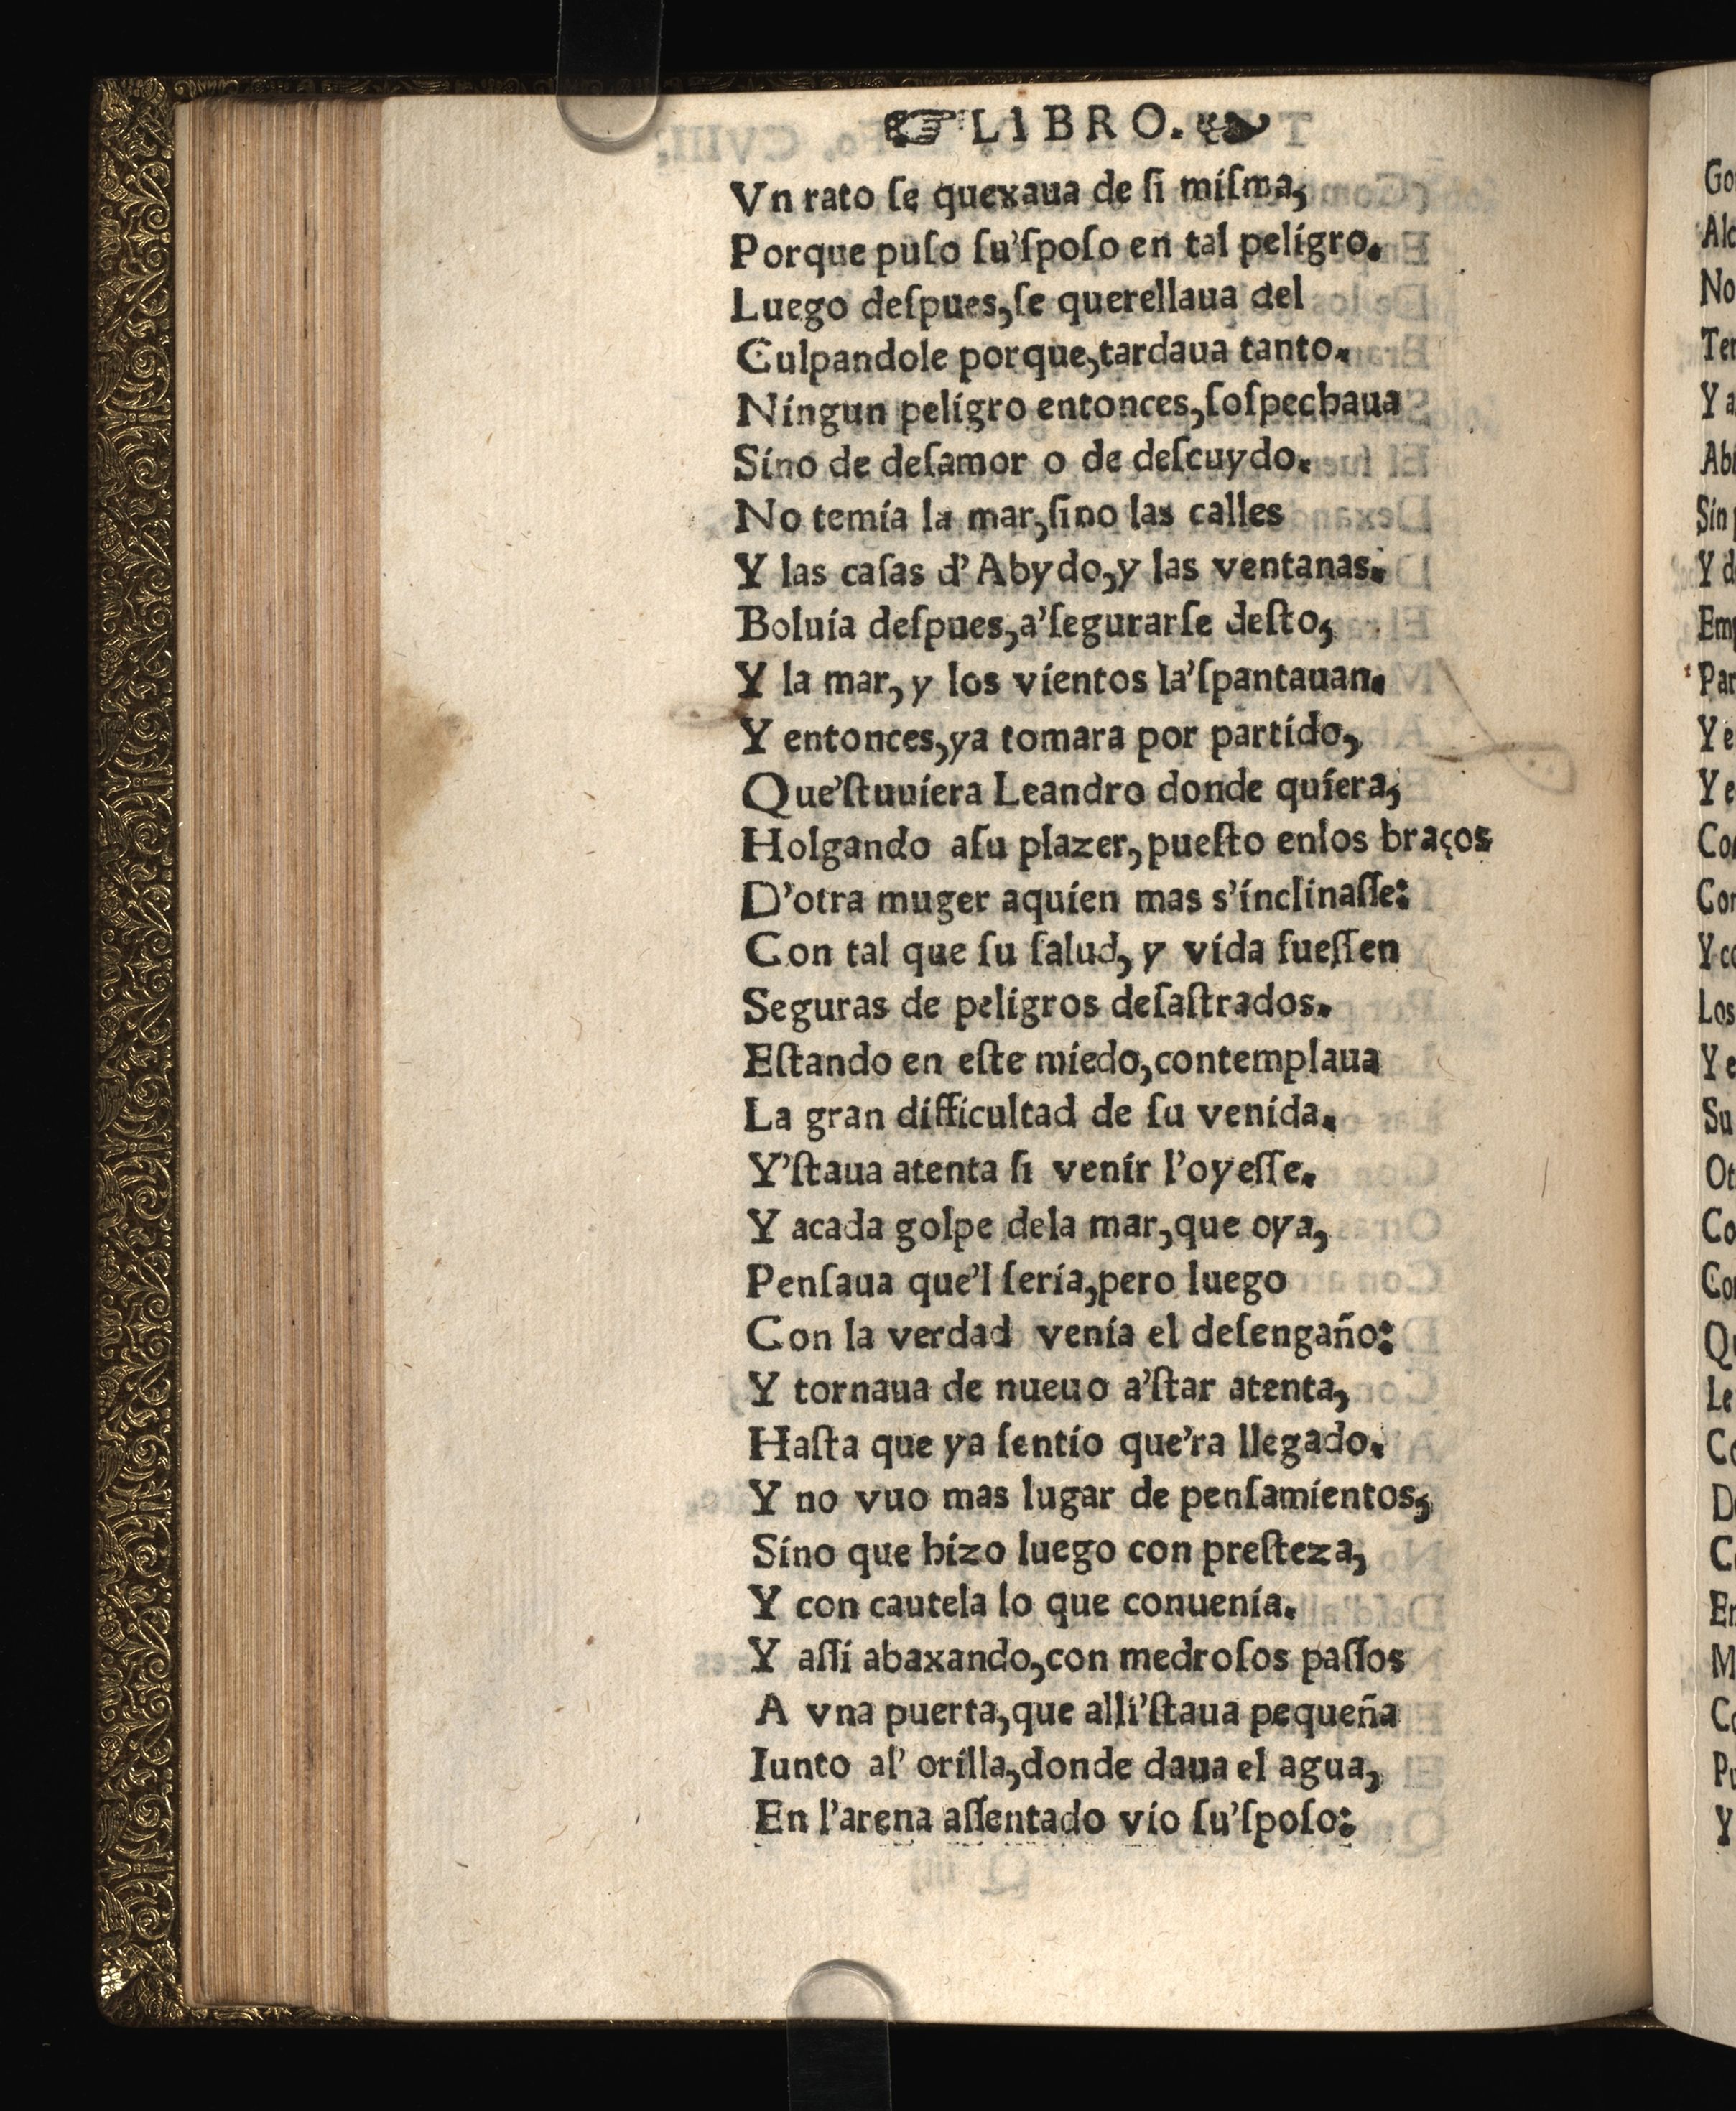 ☞LIBRO.❧
Vn rato ſe quexaua de ſi miſma,
Porque puſo ſu'ſpoſo en tal peligro.
Luego deſpues,ſe querellaua del
Culpandole porque,tardaua tanto.
Ningun peligro entonces,ſoſpechaua
Sino de deſamor o de deſcuydo.
No temia la mar,ſino las calles
Y las caſas d'Abydo,y las ventanas.
Boluia deſpues,a'ſegurarſe deſto,
Y la mar, y los vientos la'ſpantauan.
Y entonces,ya tomara por partido,
Que'ſtuuiera Leandro donde quiera,
Holgando aſu plazer, pueſto enlos braços
D'otra muger aquien mas s'inclinaſſe:
Con tal que ſu ſalud, y vida fueſſen
Seguras de peligros deſaſtrados.
Eſtando en eſte miedo,contemplaua
La gran difficultad de ſu venida.
Y'ſtaua atenta ſi venir l'oyeſſe.
Y acada golpe dela mar,que oya,
Penſaua que'l ſeria,pero luego
Con la verdad venia el deſengaño:
Y tornaua de nueuo a'ſtar atenta,
Haſta que ya ſentio que'ra llegado.
Y no vuo mas lugar de penſamientos,
Sino que hizo luego con preſteza,
Y con cautela lo que conuenia.
Y aſſi abaxando,con medroſos paſſos
A vna puerta,que alli'ſtaua pequeña
Iunto al' orilla,donde daua el agua,
En l'arena aſſentado vio ſu'ſpoſo: